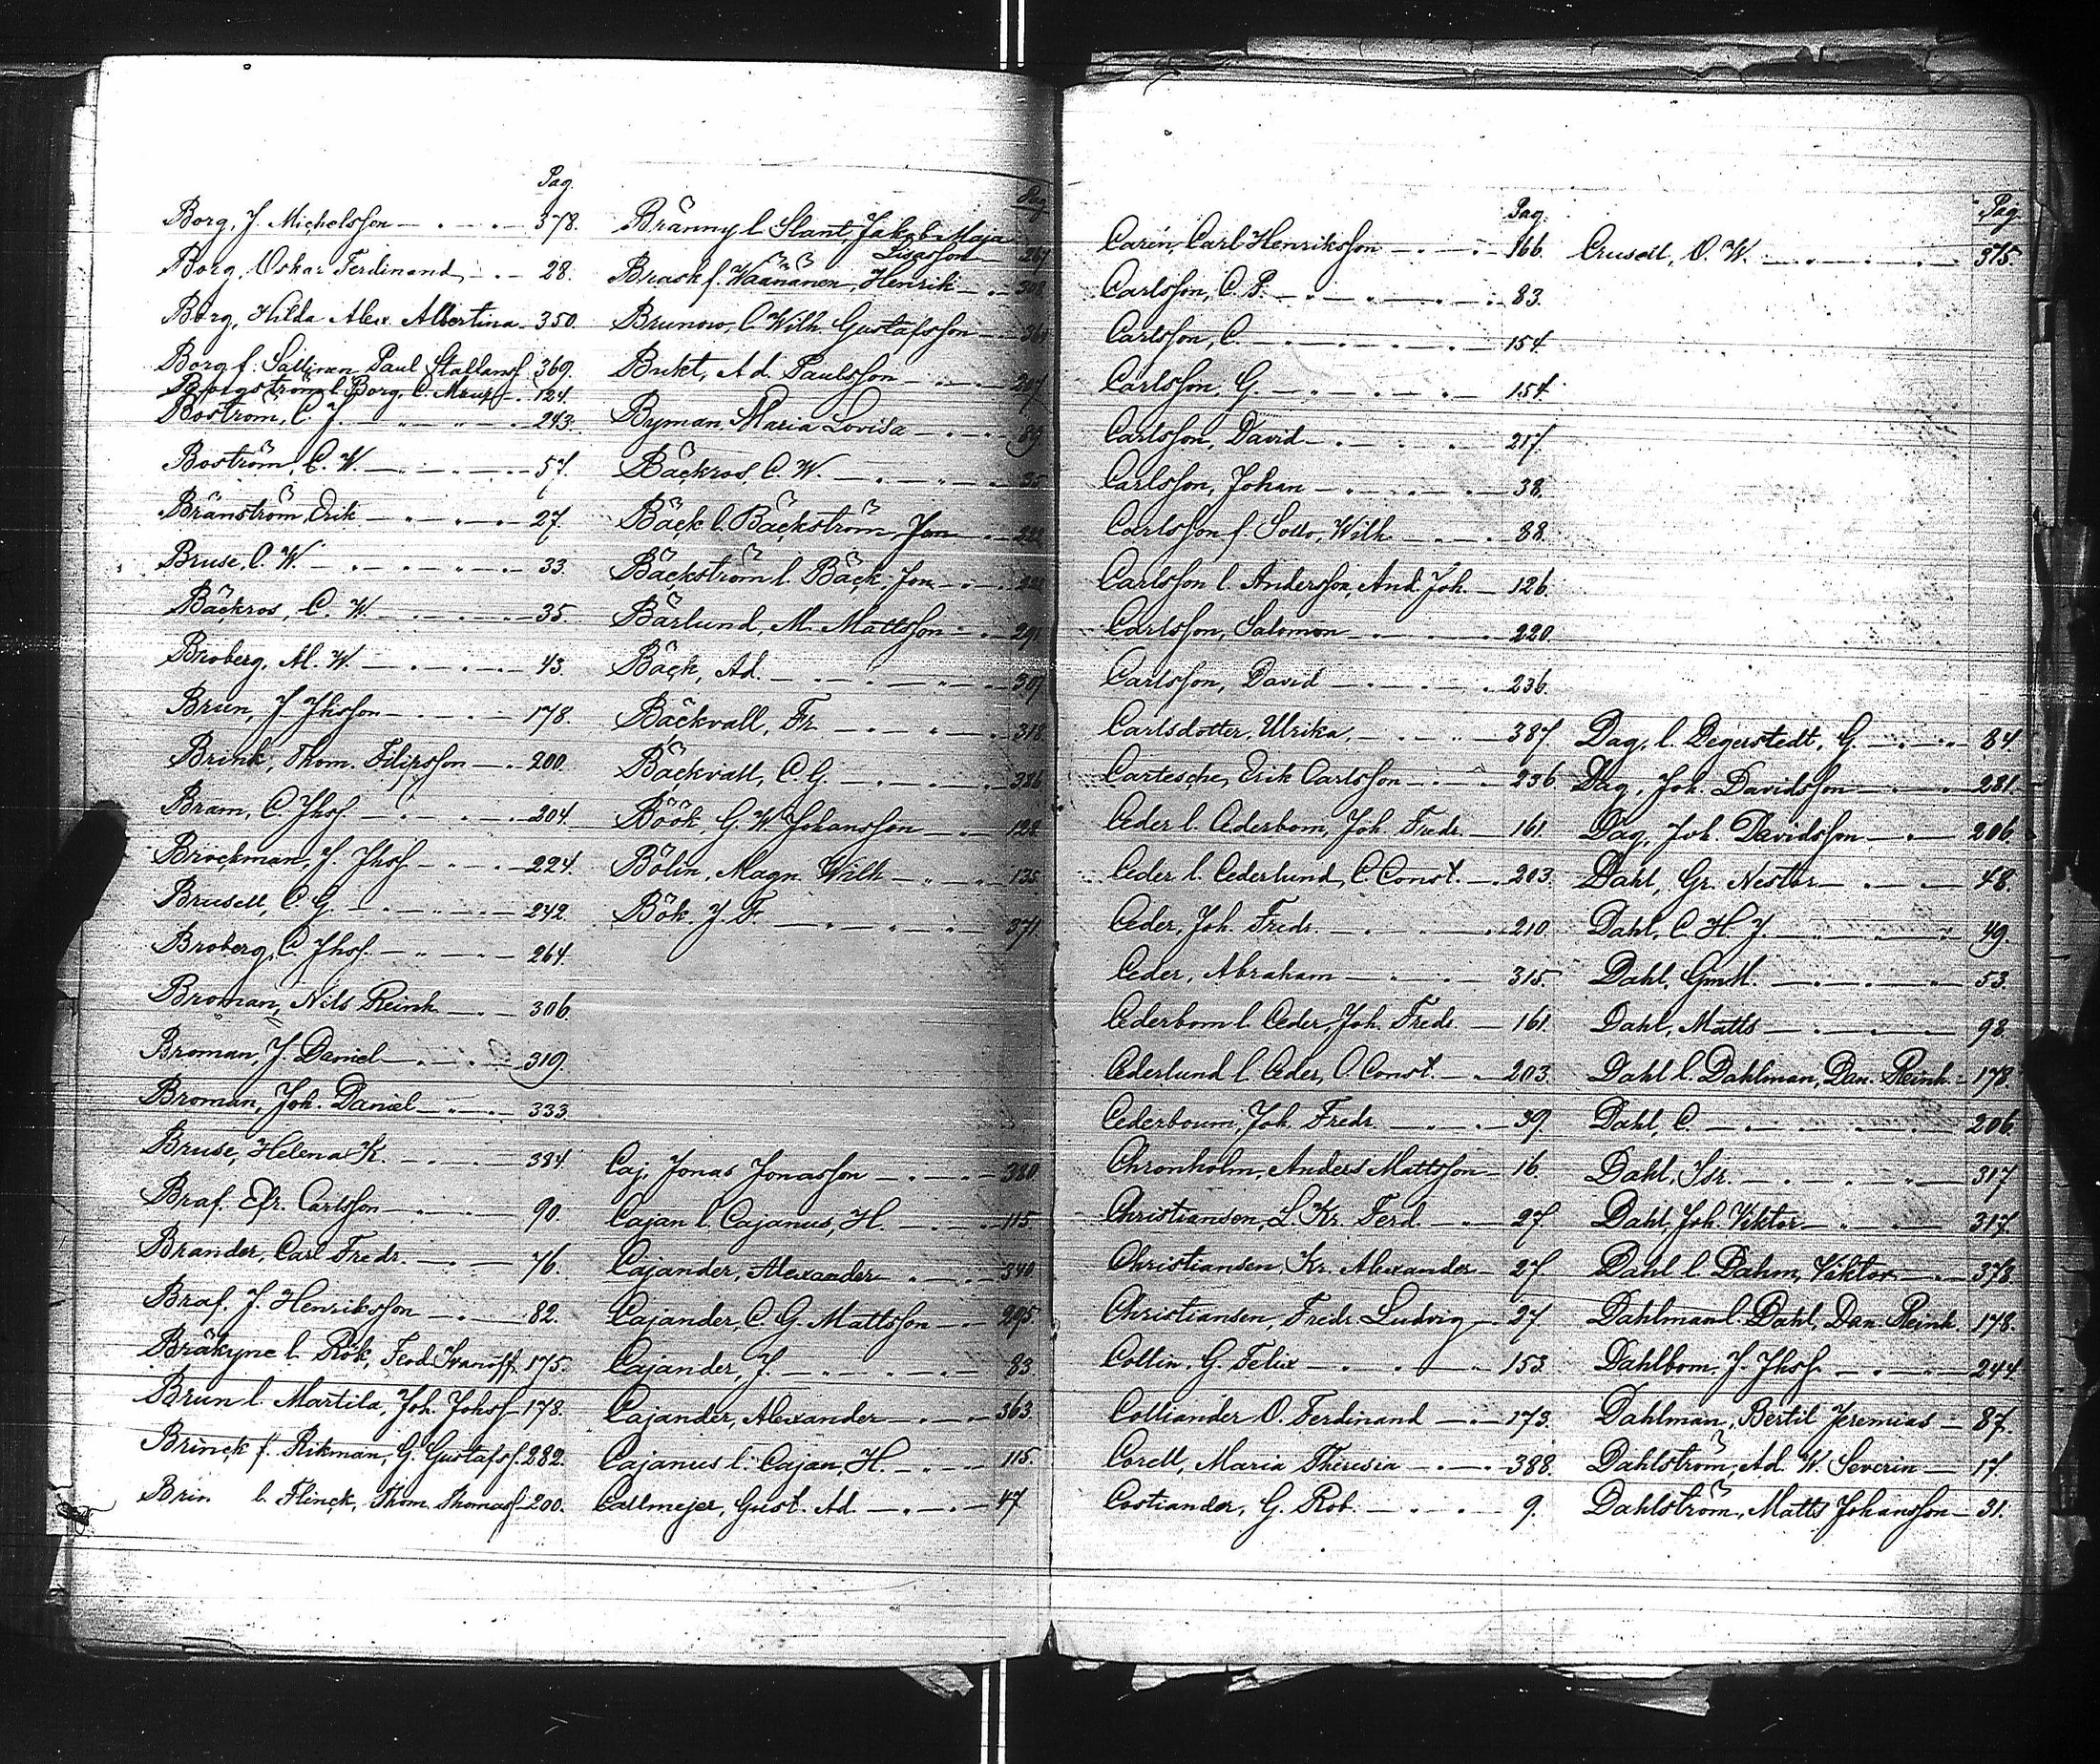 Pag.
Borg, J. Michelsson 378.
Borg, Oskar Ferdinand 28.
Borg, Hilda Alex. Albertina 350.
Borg f. Sallinen Paul Stallans 369.
Borgström l. Borg, C. 124.
Boström, C. J. 243.
Boström, C. W. 57.
Bränström, Erik 27.
Bruse, C. W. 33.
Bäckros, C. W. 35.
Broberg, A. W. 43.
Brun, J. Jhsson 178.
Brink, Thom. Filipsson 200.
Bram, C. Jhss. 204.
Brockman, J. Jhss 224.
Brusell, C. G. 242.
Broberg, C. Jhss. 264.
Broman, Nils Reinh. 306.
Broman, J. Daniel 319.
Broman, Joh. Daniel 333.
Bruse, Helena K. 384.
Braf. Efr. Carlsson 90.
Brander, Carl Fredr. 76.
Braf. J. Henriksson 82.
Bräkyne l. Rök, Feod. Ivanoff 175.
Brun l. Martila, Joh. Johss 178.
Brinck f. Rikman, G. Gustafss. 282.
Brin l. Flinck, Thom. Thomass 200.
Pag
Brännyl. Slant, Jakob Maja
Lisasson
Brask f. Wäänänen, Henrik
Brunow, C. Wilh. Gustafsson
Bukt, Ad. Paulsson
Byman, Maria Lovisa 89
Bäckros, C. W. 35
Bäck l. Bäckström, Jon 222
Bäckström l. Bäck, Jon 222
Bärlund, M. Mattsson 291
Bäck, Ad. 307
Bäckvall, Fr. 318
Bäckvall, C. G. 386
Böök, G. W. Johansson 128
Bölin, Magn. Wilh. 135
Bök. J. F. 371
Caj, Jonas Jonasson 380
Cajan l. Cajanus, H. 115
Cajander, Alexander 340
Cajander, C. G. Mattsson 295.
Cajander, J. 83
Cajander, Alexander 363
Cajanus l. Cajan, H. 115.
Callmejer, Gust. Ad. 47
Pag.
Carén, Carl Henriksson 166.
Carlsson, C. P. 83.
Carlsson, C. 154.
Carlsson, G. 154.
Carlsson, David 217.
Carlsson, Johan 38.
Carlsson f. Sollo, Wilh. 88.
Carlsson l. Andersson, And. Joh. 126.
Carlsson, Salomon 220.
Carlsson, David 236.
Carlsdotter, Ulrika, 387
Cartesche, Erik Carlsson 236.
Ceder l. Cederbom, Joh. Fredr. 161.
Ceder l. Cederlund, C. Const. 203.
Ceder, Joh. Fredr. 210.
Ceder, Abraham 315.
Cederbom l. Ceder, Joh. Fredr. 161.
Cederlund l. Ceder, C. Const. 203.
Cederboum, Joh. Fredr. 39.
Chronholm, Anders Mattsson 16.
Christiansen, L. Kr. Ferd. 27.
Christiansen, Kr. Alexander 27.
Christiansen, Fredr. Ludvig 27.
Collin, G. Felix 153.
Colliander O. Ferdinand 173.
Corell, Maria Theresia 388.
Costiander, G. Rob. 9.
Pag.
Crusell, O. W. 375.
Dag, l. Degerstedt, G. 84
Dag, Joh. Davidsson 281.
Dag, Joh. Davidsson 206.
Dahl, Gr. Nestor 48.
Dahl, C. H. J. 49.
Dahl, 53.
Dahl, Matts 98.
Dahl l. Dahlman, Dan. Reinh. 178
Dahl, C. 206.
Dahl, Isr. 317
Dahl, Joh. Viktor 317.
Dahl l. Dahm, Viktor 378.
Dahlman l. Dahl, Dan. Reinh. 178.
Dahlbom, J. Jhss. 244.
Dahlman, Bertil Jeremias 87.
Dahlström, Ad. W. Severin 17
Dahlström, Matts Johansson 31.